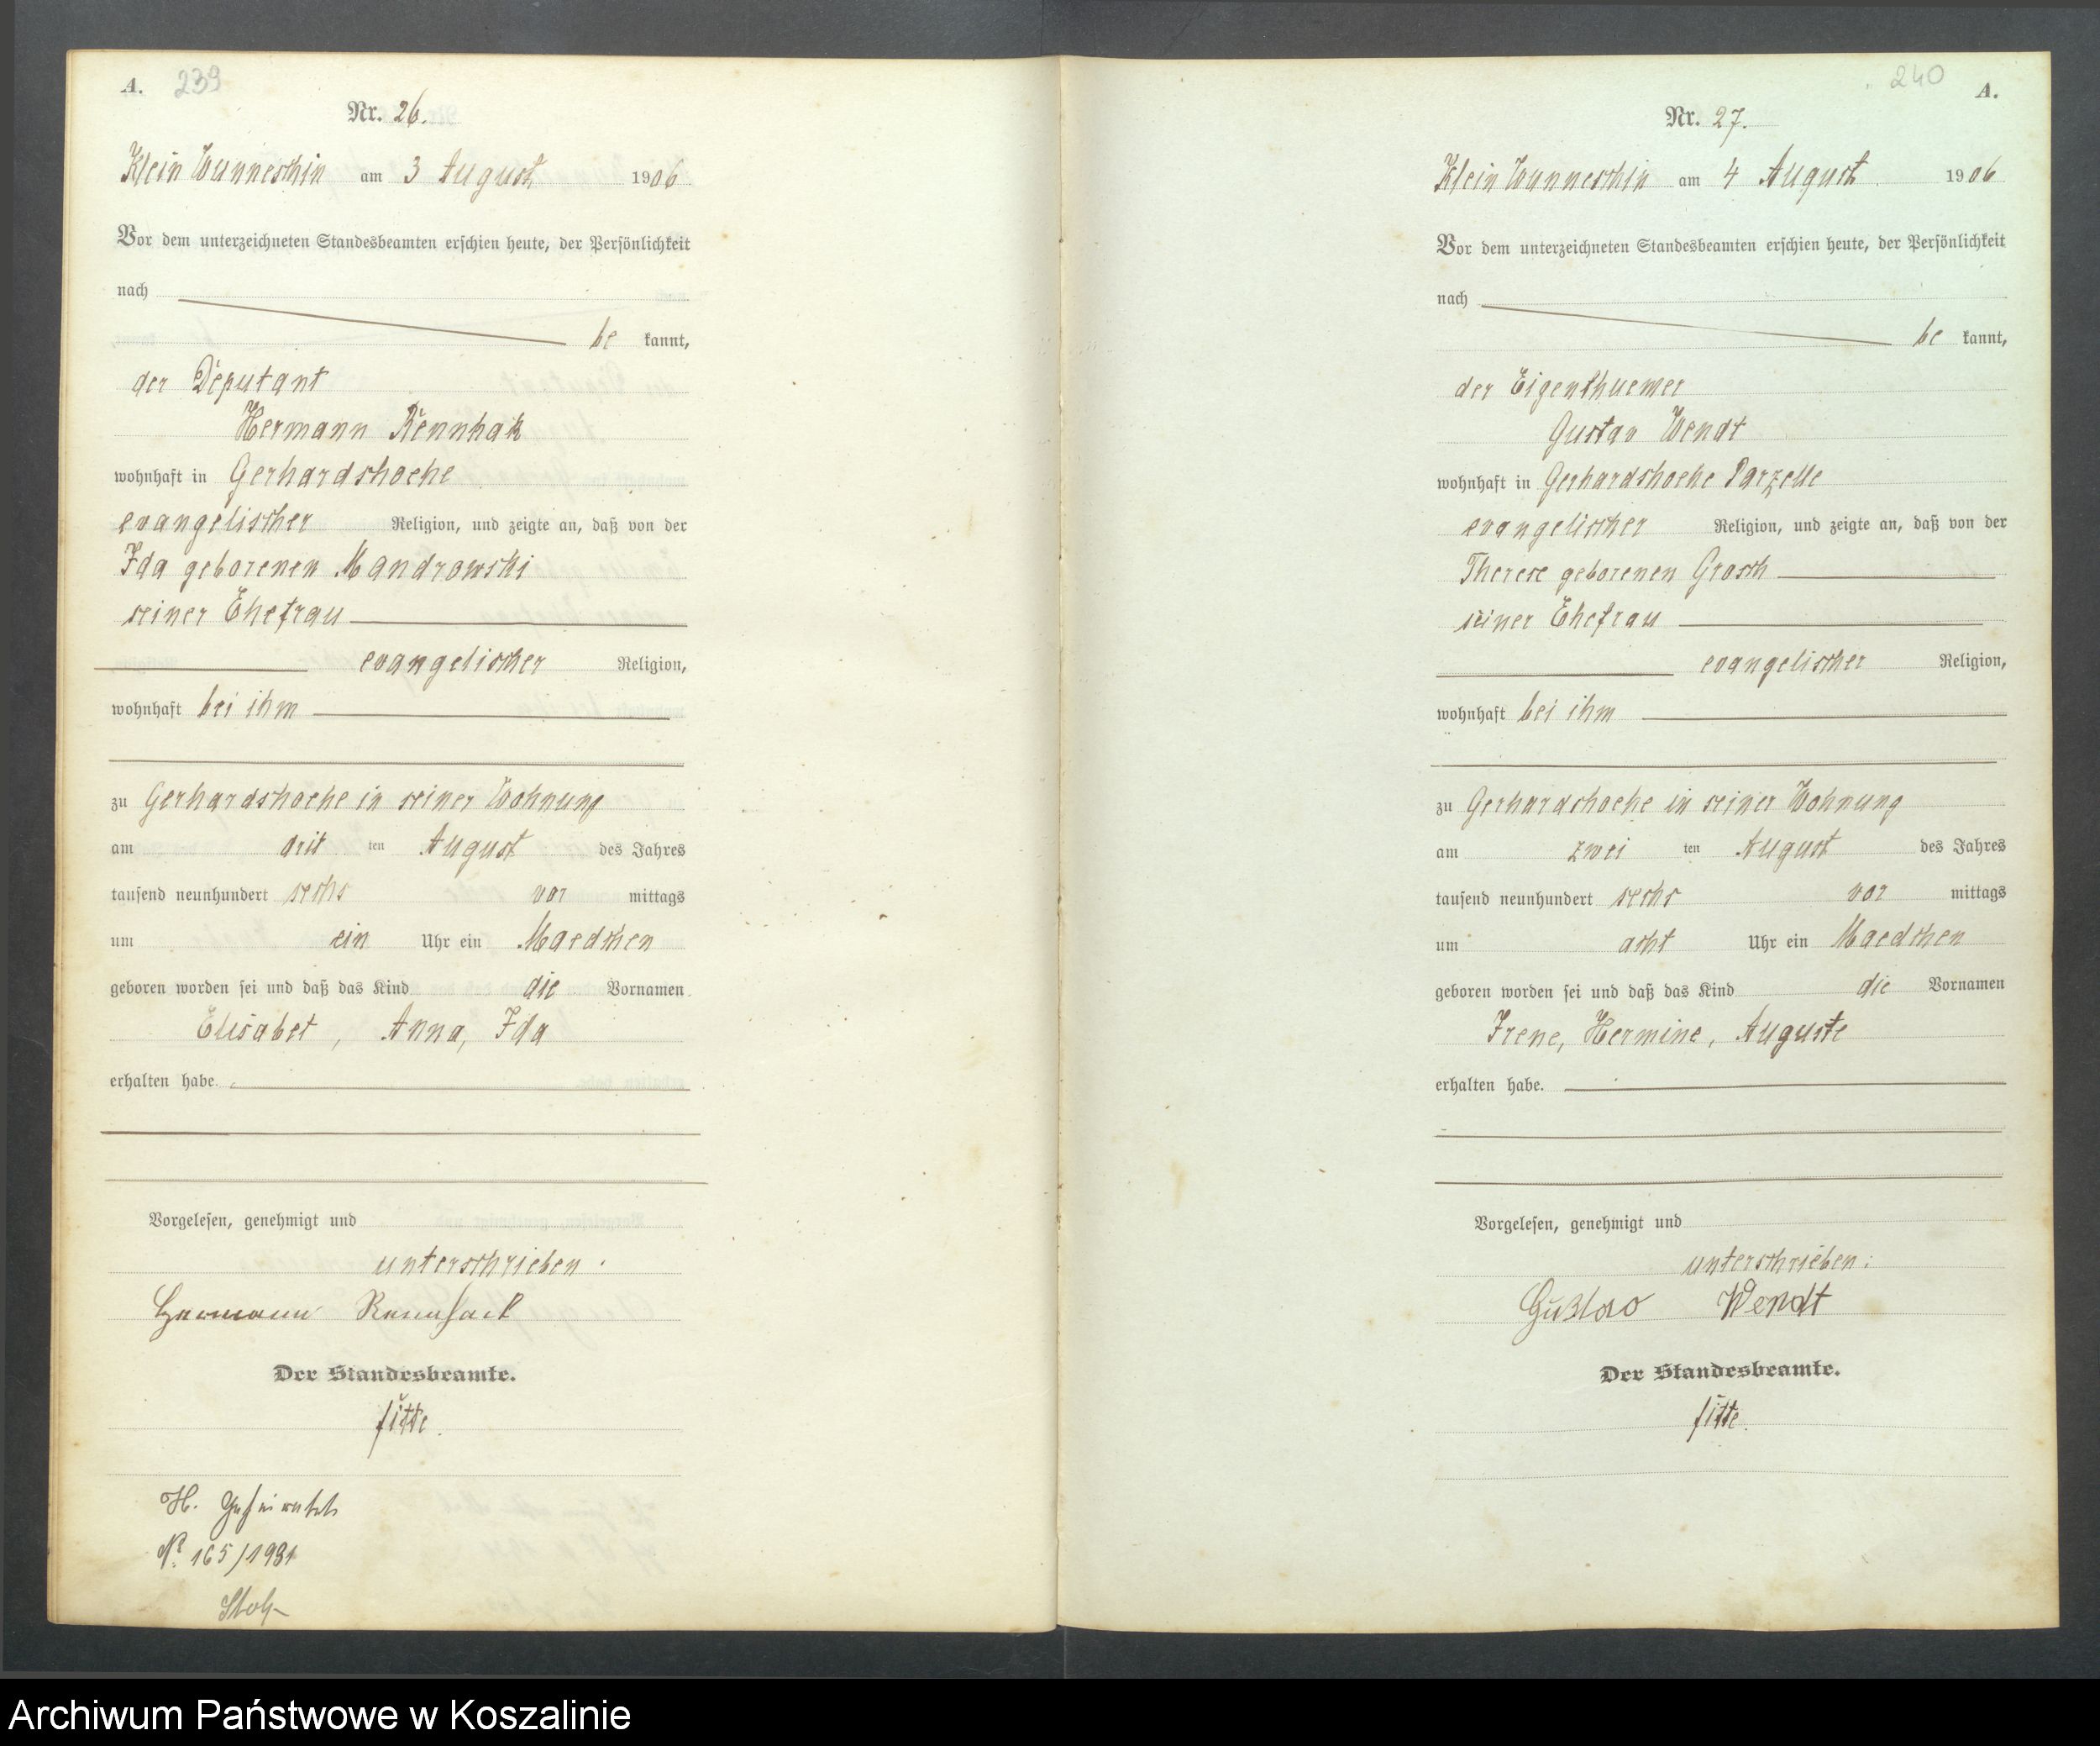 A. 239
Nr. 26.
Klein Wunneschin am 3 August 1906
Vor dem unterzeichneten Standesbeamten erschien heute, der Persönlichkeit
nach
be kannt,
der Deputant
Hermann Rennhak
wohnhaft in Gerhardshoehe
evangelischer Religion, und zeigte an, daß von der
Ida geborenen Mandrowski
seiner Ehefrau
evangelischer Religion,
wohnhaft bei ihm
zu Gerhardshoehe in seiner Wohnung
am drit ten August des Jahres
tausend neunhundert sechs vor mittags
um ein Uhr ein Maedchen
geboren worden sei und daß das Kind die Vornamen
Elisabet, Anna, Ida
erhalten habe.
Vorgelesen, genehmigt und
unterschrieben.
Hermann Rennhack
Der Standesbeamte.
H. Geheiratet
No. 165/1931
Stolp
240 A.
Nr. 27.
Klein Wunneschin am 4 August 1906
Vor dem unterzeichneten Standesbeamten erschien heute, der Persönlichkeit
nach
be kannt,
der Eigenthuemer
Gustav Wendt
wohnhaft in Gerhardshoehe Parzelle
evangelischer Religion, und zeigte an, daß von der
Therese geborenen Grosch
seiner Ehefrau
evangelischer Religion,
wohnhaft bei ihm
zu Gerhardshoehe in seiner Wohnung
am zwei ten August des Jahres
tausend neunhundert sechs vor mittags
um acht Uhr ein Maedchen
geboren worden sei und daß das Kind die Vornamen
Irene, Hermine, Auguste
erhalten habe.
Vorgelesen, genehmigt und
unterschrieben:
Gustav Wendt
Der Standesbeamte.
Archiwum Państwowe w Koszalinie